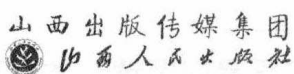 山西出版传媒集团
山西人民出版社